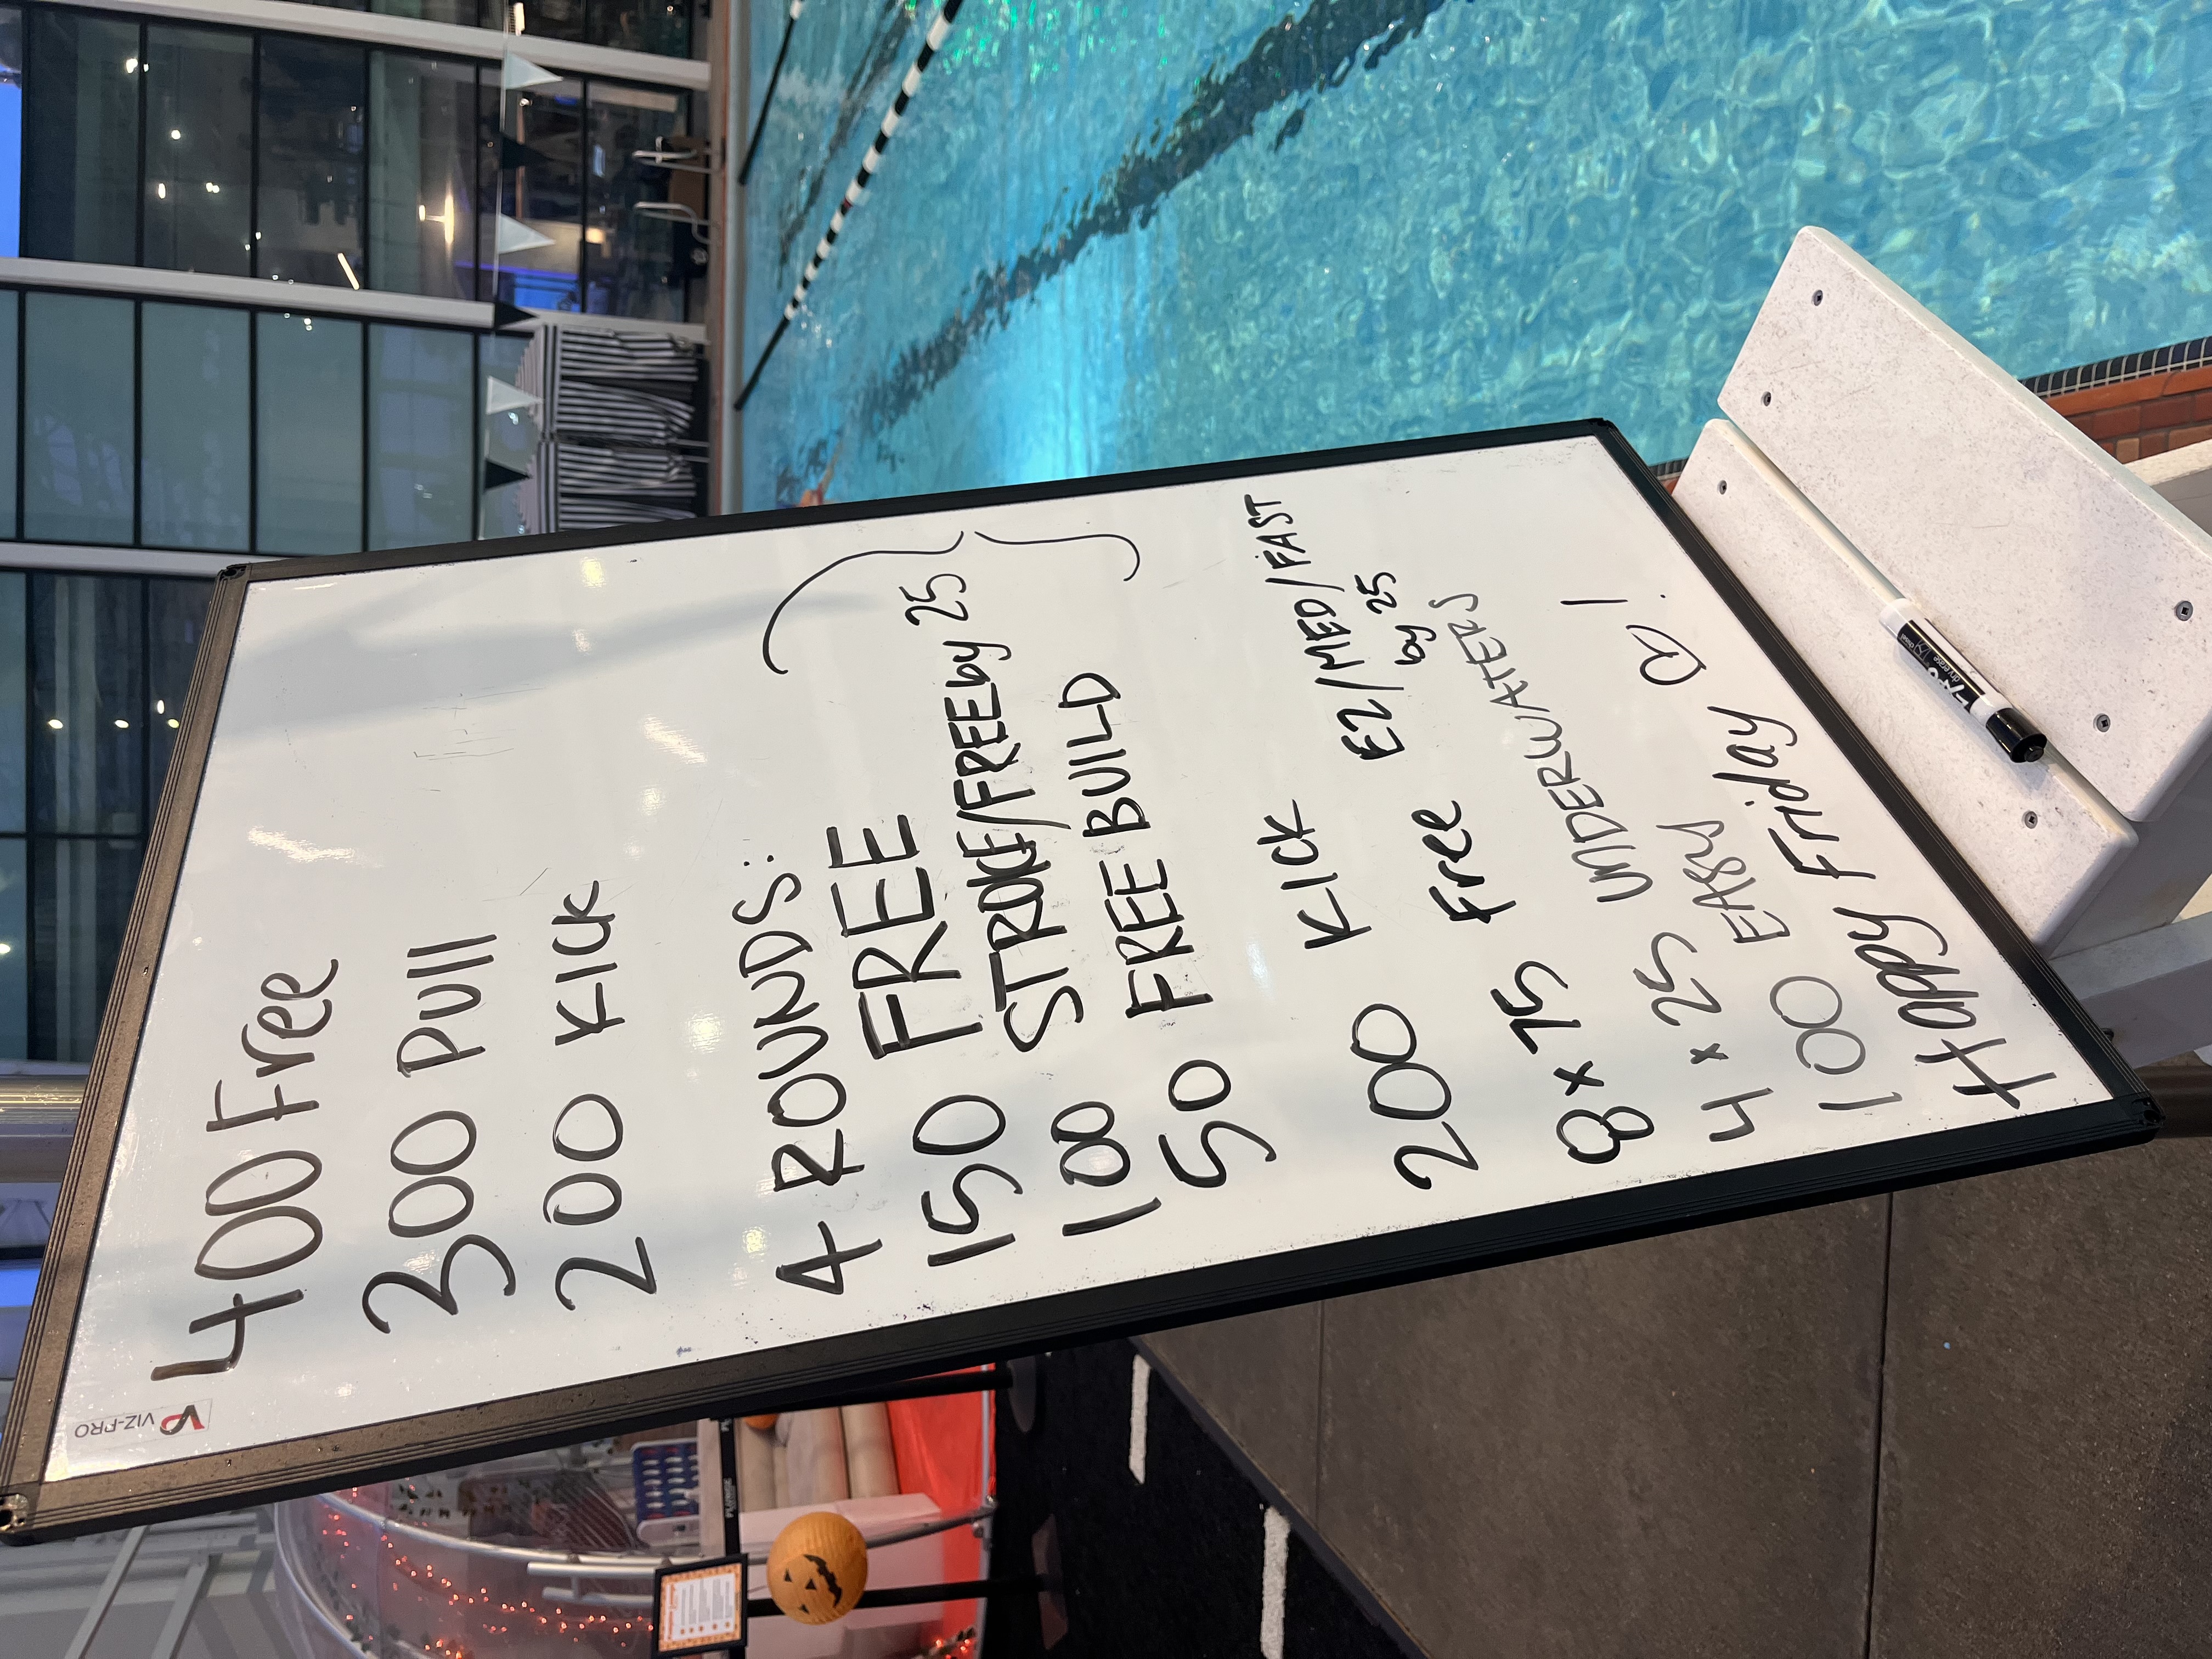 VIZ-PRO
400 Free
300 Pull
200 Kick
4 ROUNDS:
150 FREE
100 STROKE/FREE by 25
50 FREE BUILD
200 KICK
8 x 75 Free EZ/MED/FAST by 25
4 x 25 UNDERWATERS
100 EASY
Happy Friday !
EXPO